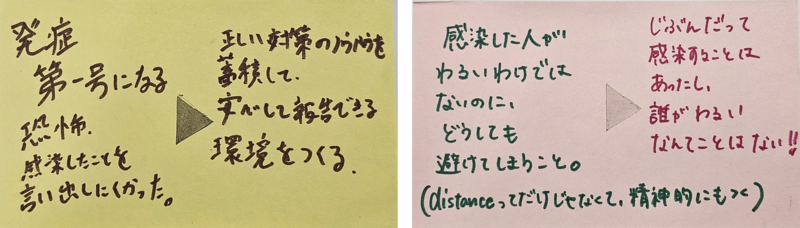 発症
第一号になる
恐怖.
感染したことを
言い出しにくかった。
正しい対策のノウハウを
蓄積して.
安心して報告できる
環境をつくる.
感染した人が
わるいわけでは
ないのに、
どうしても
避けてしまうこと。
(distanceってだけじゃなくて、精神的にもつく)
じぶんだって
感染することは
あったし、
誰がわるい
なんてことはない!!